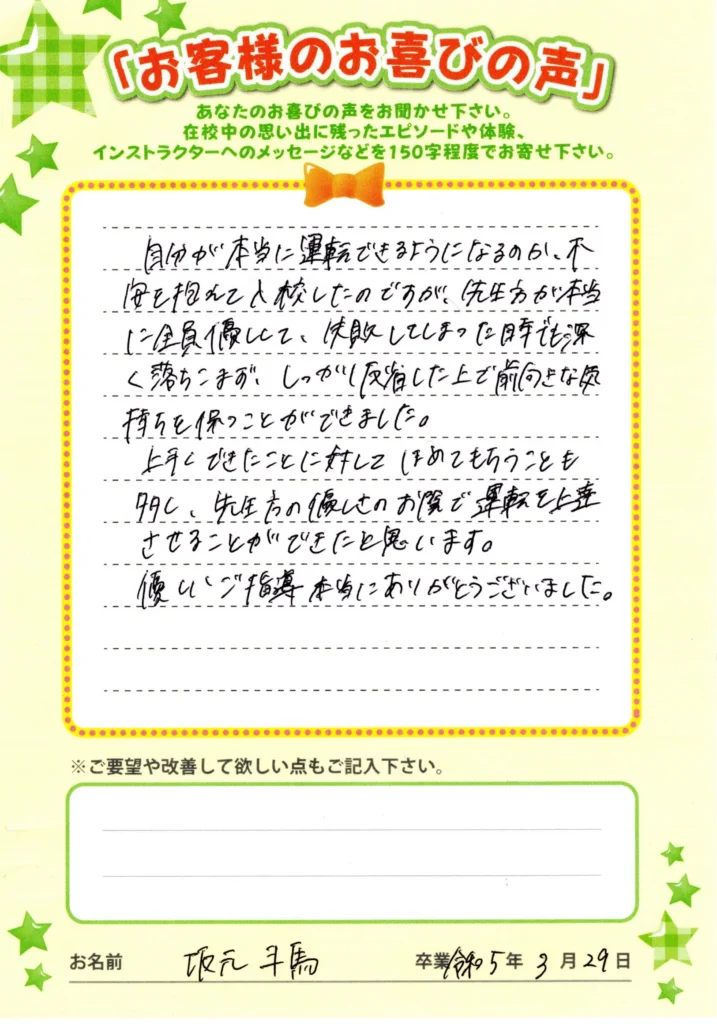 「お客様のお喜びの声」
あなたのお喜びの声をお聞かせ下さい。
在校中の思い出に残ったエピソードや体験、
インストラクターへのメッセージなどを150字程度でお寄せ下さい。
自分が本当に運転できるようになるのか、不
安を抱えて入校したのですが、先生方が本当
に全員優しくて、失敗してしまった時でも深
く落ちこまず、しっかり反省した上で前向きな気
持ちを保つことができました。
上手くできたことに対してほめてもらうことも
多く、先生方の優しさのお陰で運転を上達
させることができたと思います。
優しいご指導本当にありがとうございました。
※ご要望や改善して欲しい点もご記入下さい。
お名前 坂元 斗馬 卒業 令和5年 3月29日